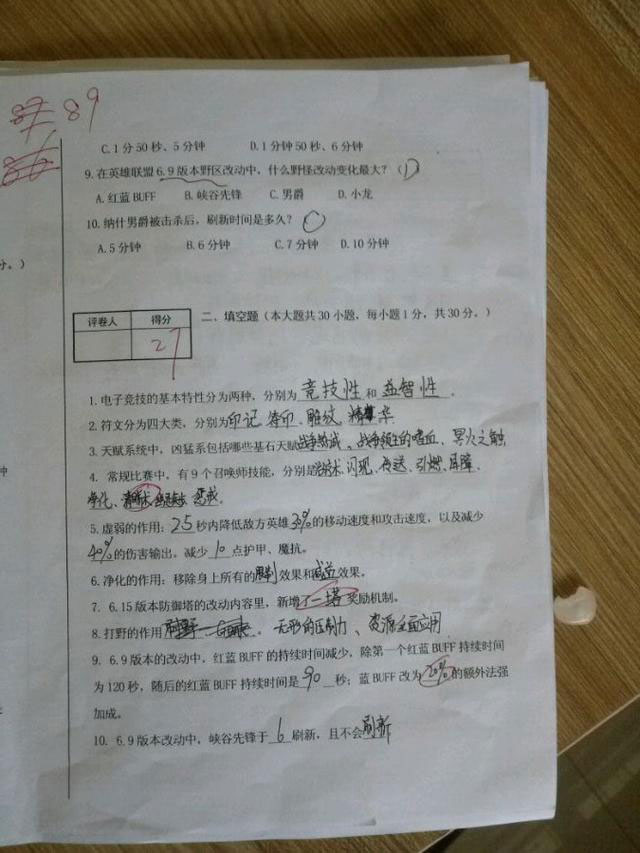 89
C.1分50秒、5分钟 D.1分钟50秒、6分钟
9.在英雄联盟6.9版本野区改动中，什么野怪改动变化最大？（D）
A.红蓝BUFF B.峡谷先锋 C.男爵 D.小龙
10.纳什男爵被击杀后，刷新时间是多久？（）
A.5分钟 B.6分钟 C.7分钟 D.10分钟
分。）
评卷人 得分
27
二、填空题（本大题共30小题，每小题1分，共30分。）
1.电子竞技的基本特性分为两种，分别为 竞技性 和 益智性 。
2.符文分为四大类，分别为印记、符印、雕纹、精华
3.天赋系统中，凶猛系包括哪些基石天赋战争热诚、战争领主的嗜血、冥火之触
4. 常规比赛中，有9个召唤师技能，分别是治疗术、闪现、传送、引燃、屏障、
净化、清晰术 惩戒
5.虚弱的作用：2.5秒内降低敌方英雄30%的移动速度和攻击速度，以及减少
40%的伤害输出。减少10点护甲、魔抗。
6.净化的作用：移除身上所有的限制效果和减益效果。
7. 6.15版本防御塔的改动内容里，新增了一塔奖励机制。
8.打野的作用 。无形的压制力、资源全面应用
9. 6.9版本的改动中，红蓝BUFF的持续时间减少，除第一个红蓝BUFF持续时间
为120秒，随后的红蓝BUFF持续时间是90秒；蓝BUFF改为20%的额外法强
加成。
10. 6.9版本改动中，峡谷先锋于 6 刷新，且不会刷新
钟